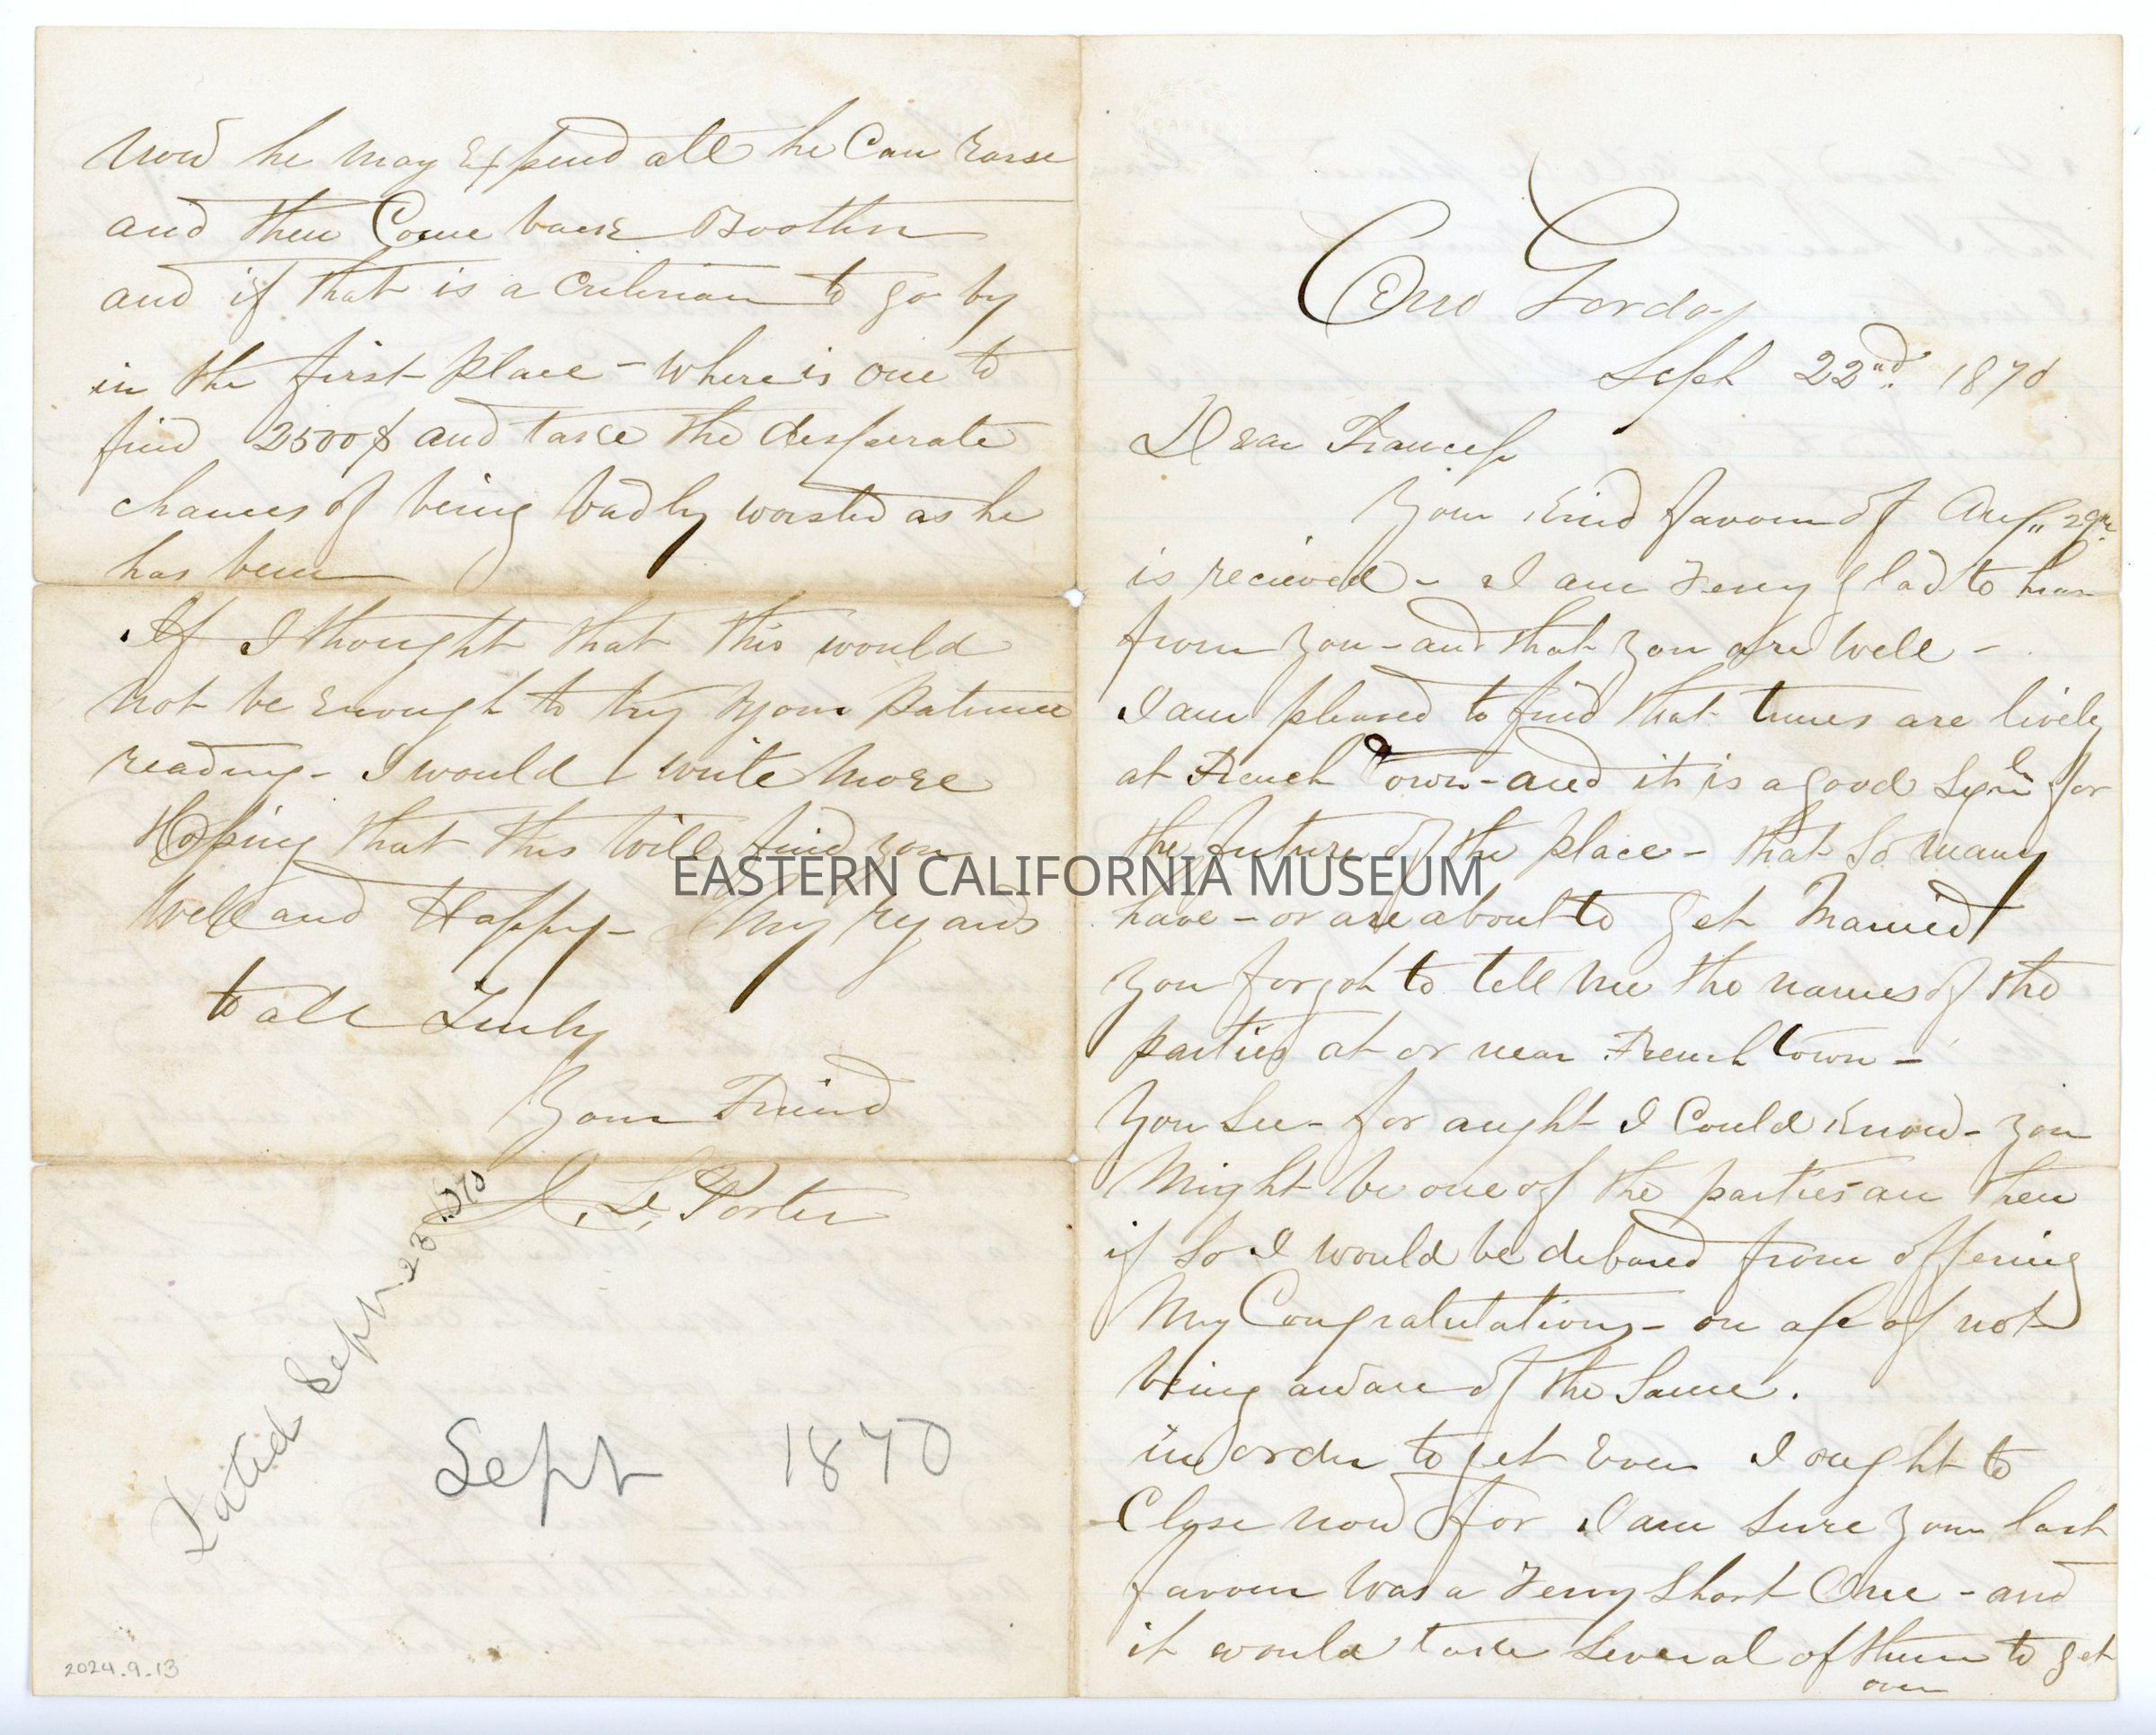 Cerro Gordo
Sept 22nd. 1870
Dear Frances
Your kind favour of Aug,, 29th
is recieved - I am very glad to hear
from you - and that you are well -
I am pleased to find that times are lively
at French Town - and it is a good sign for
the future of the place - that so many
have - or are about to get Married
you forgot to tell me the names of the
parties at or near French town -
You see - for aught I Could know - you
Might be one of the parties an then
if so I would be debared from offering
My Congratulations - on a/c of not
being aware of the Same.
in order to get Even I ought to
Close now for I am sure your last
favour was a very short One - and
it would take several of them to get
over
now he may Expend all he Can raise
and then Come back
and if that is a criterian to go by
in the first place - where is one to
find 2500$ and take the desperate
chances of being badly worsted as he
has been
If I thought that this would
not be Enough to try your patience
reading - I would write More
Hoping that this will find you
well and Happy - My regards
to all Truly
Your Friend
J. L. Porter
Dated Sept 23 1870
Sept 1870
2024.9.13
EASTERN CALIFORNIA MUSEUM